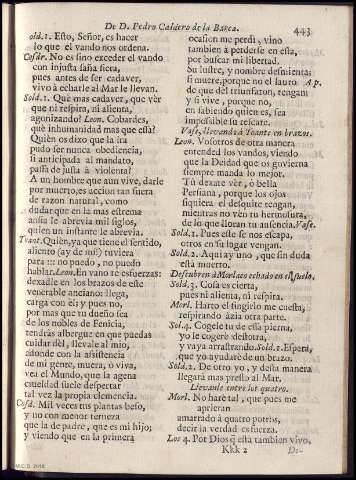 De D. Pedro Calderon de la Barca. 443
Sold.1. Esto, Señor, es hacer
lo que el vando nos ordena.
Cosdr. No es sino exceder el vando
con injusta saña fiera,
pues antes de ser cadaver,
vivo à echarle al Mar le llevan.
Sold.1. Què mas cadaver, que vèr
que ni respira, ni alienta,
agonizando? Leon. Cobardes,
què inhumanidad mas que essa?
Quièn os dixo que la ira
pudo ser nunca obediencia,
si anticipada al mandato,
passa de justa à violenta?
A un hombre que aun vive, darle
por muerto, es accion tan fuera
de razon natural, como
dudar que en la mas estrema
ansia le abrevia mil siglos,
quien un instante le abrevia.
Toant. Quièn, ya que tiene el sentido,
aliento (ay de mi!) tuviera
para ::: no puedo, no puedo
hablar. Leon. En vano te esfuerzas:
dexadle en los brazos de este
venerable anciano: llega,
carga con èl; y pues no,
por mas que tu dueño sea
de los nobles de Fenicia,
tendràs albergue en que puedas
cuidar dèl, llevale al mio,
adonde con la assistencia
de mi gente, muera, ò viva,
vea el Mundo, que la agena
crueldad suele despertar
tal vez la propia clemencia.
Cosd. Mil veces tus plantas beso,
y no con menor terneza
que la de padre, que es mi hijo;
y viendo que en la primera
ocasion me perdì, vino
tambien à perderse en esta,
por buscar mi libertad.
Su lustre, y nombre desmienta; Ap.
si muere, porque no el lauro
de que del triunfaron, tengan;
y si vive, porque no,
en sabiendo quien es, sea
impossible su rescate.
Vase, llevando à Toante en brazos.
Leon. Vosotros de otra manera
entended los vandos, viendo
que la Deidad que os govierna
siempre manda lo mejor.
Tù dexate vèr, ò bella
Persiana, porque los ojos
siquiera el desquite tengan,
mientras no vèn tu hermosura,
de lo que lloran tu ausencia. Vase.
Sold.1. Pues este se nos escapa,
otros en su lugar vengan.
Sold.2. Aqui ay uno, que sin duda
està muerto.
Descubren à Morlaco echado en el suelo.
Sold.3. Cosa es cierta,
pues ni alienta, ni respira.
Morl. Harto el fingirlo me cuesta,
respirando àzia otra parte.
Sol.4. Cogele tu de essa pierna,
y yo le cogerè destotra,
y vaya arrastrando. Sold.1. Espera,
que yo ayudarè de un brazo.
Sold.2. De otro yo, y desta manera
llegarà mas presto al Mar.
Llevanle entre los quatro.
Morl. No harè tal, que pues me
aprietan
amarrado à quatro potros,
decir la verdad es fuerza.
Los 4. Por Dios q̃ està tambien vivo.
Kkk 2 De-